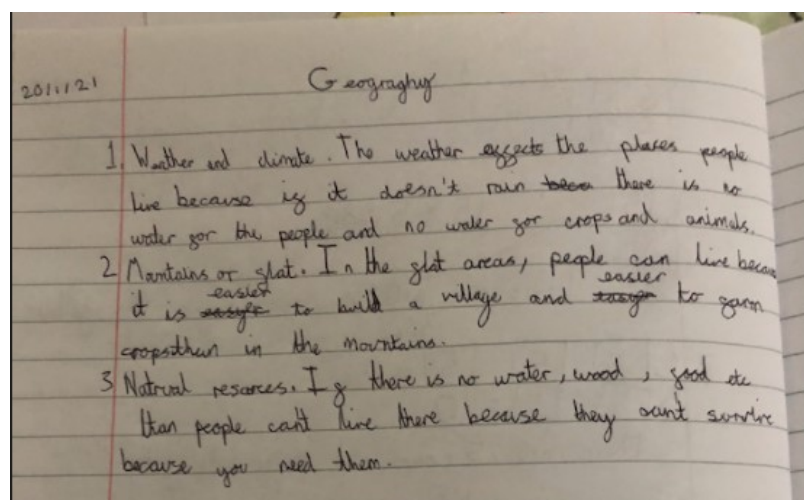 20/1/21
Geography
1. Weather and climate. The weather effects the places people
live because if it doesn't rain becau there is no
water for the people and no water for crops and animals.
2 Mantains or flat. In the flat areas, people can live because
it is easier to build a village and easier to farm
crops than in the mountains.
3 Natrual resorces. If there is no water, wood, food etc
than people can't live there because they can't survive
because you need them.